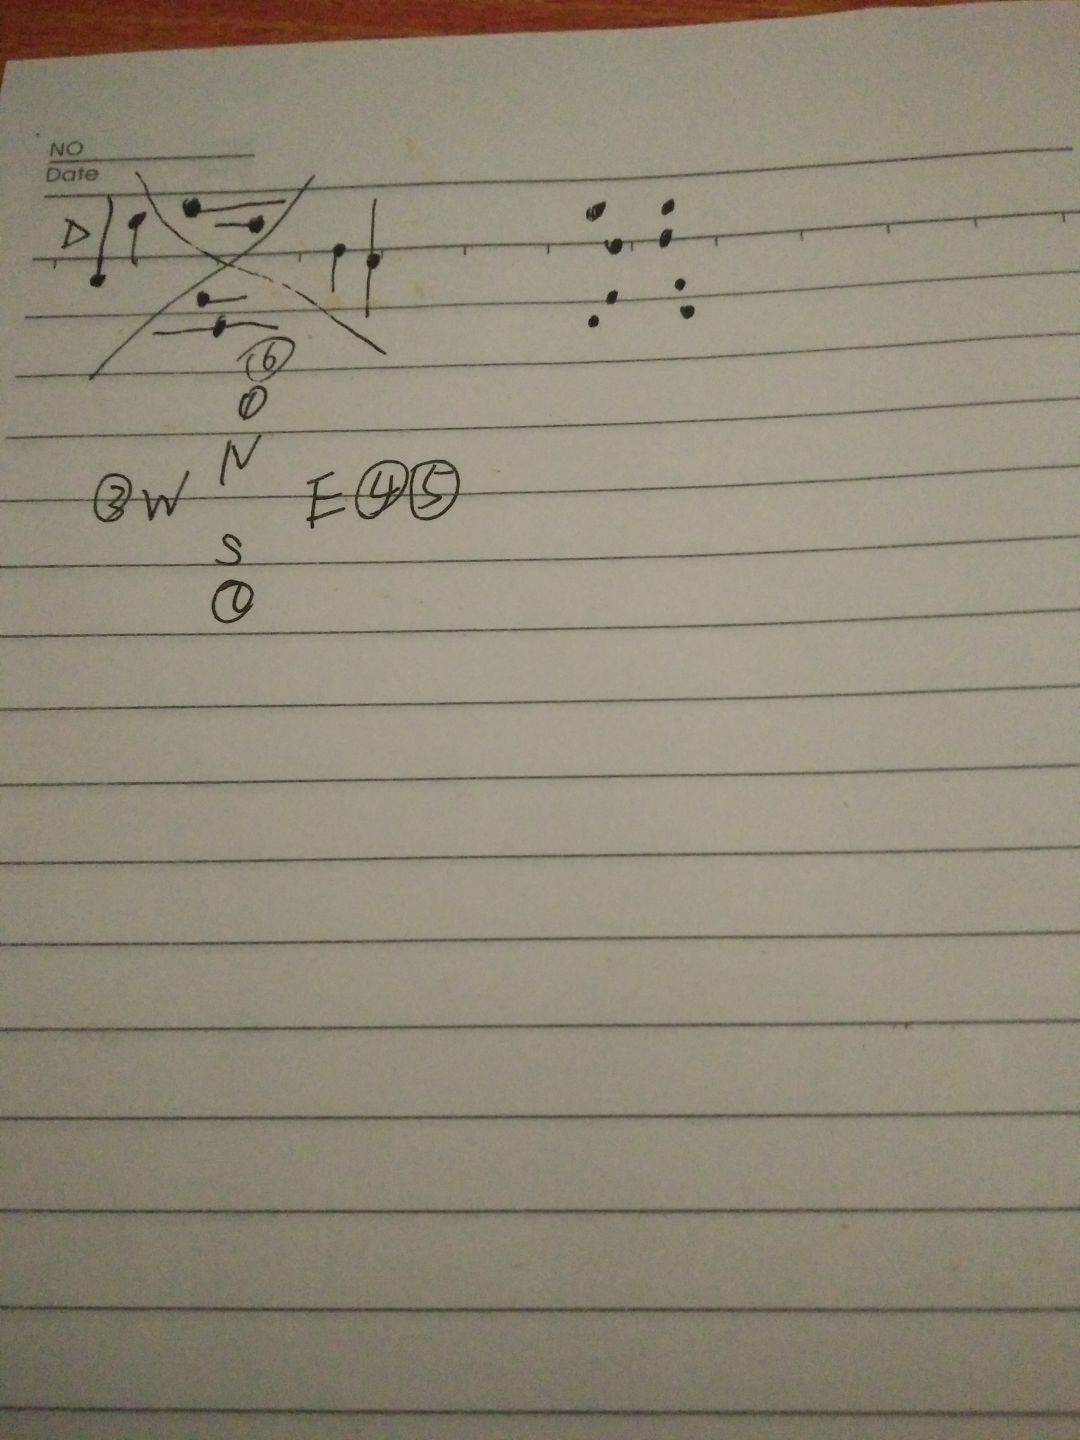 NO
Date
D
⑥
N
③ W E ④ ⑤
S